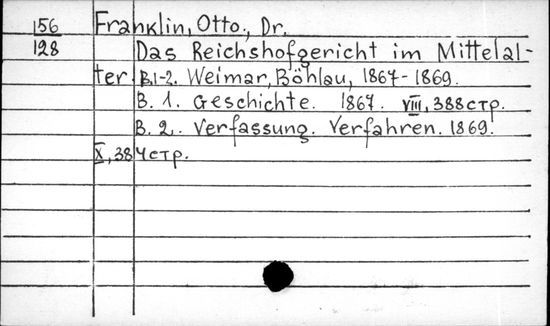 156 Franklin, Otto., Dr.
128 Das Reichshofgericht im Mittelal-
ter. B.1-2. Weimar, Böhlau, 1867-1869.
B. 1. Geschichte. 1867. VIII, 388 стр.
B. 2. Verfassung. Verfahren. 1869.
X, 384 стр.